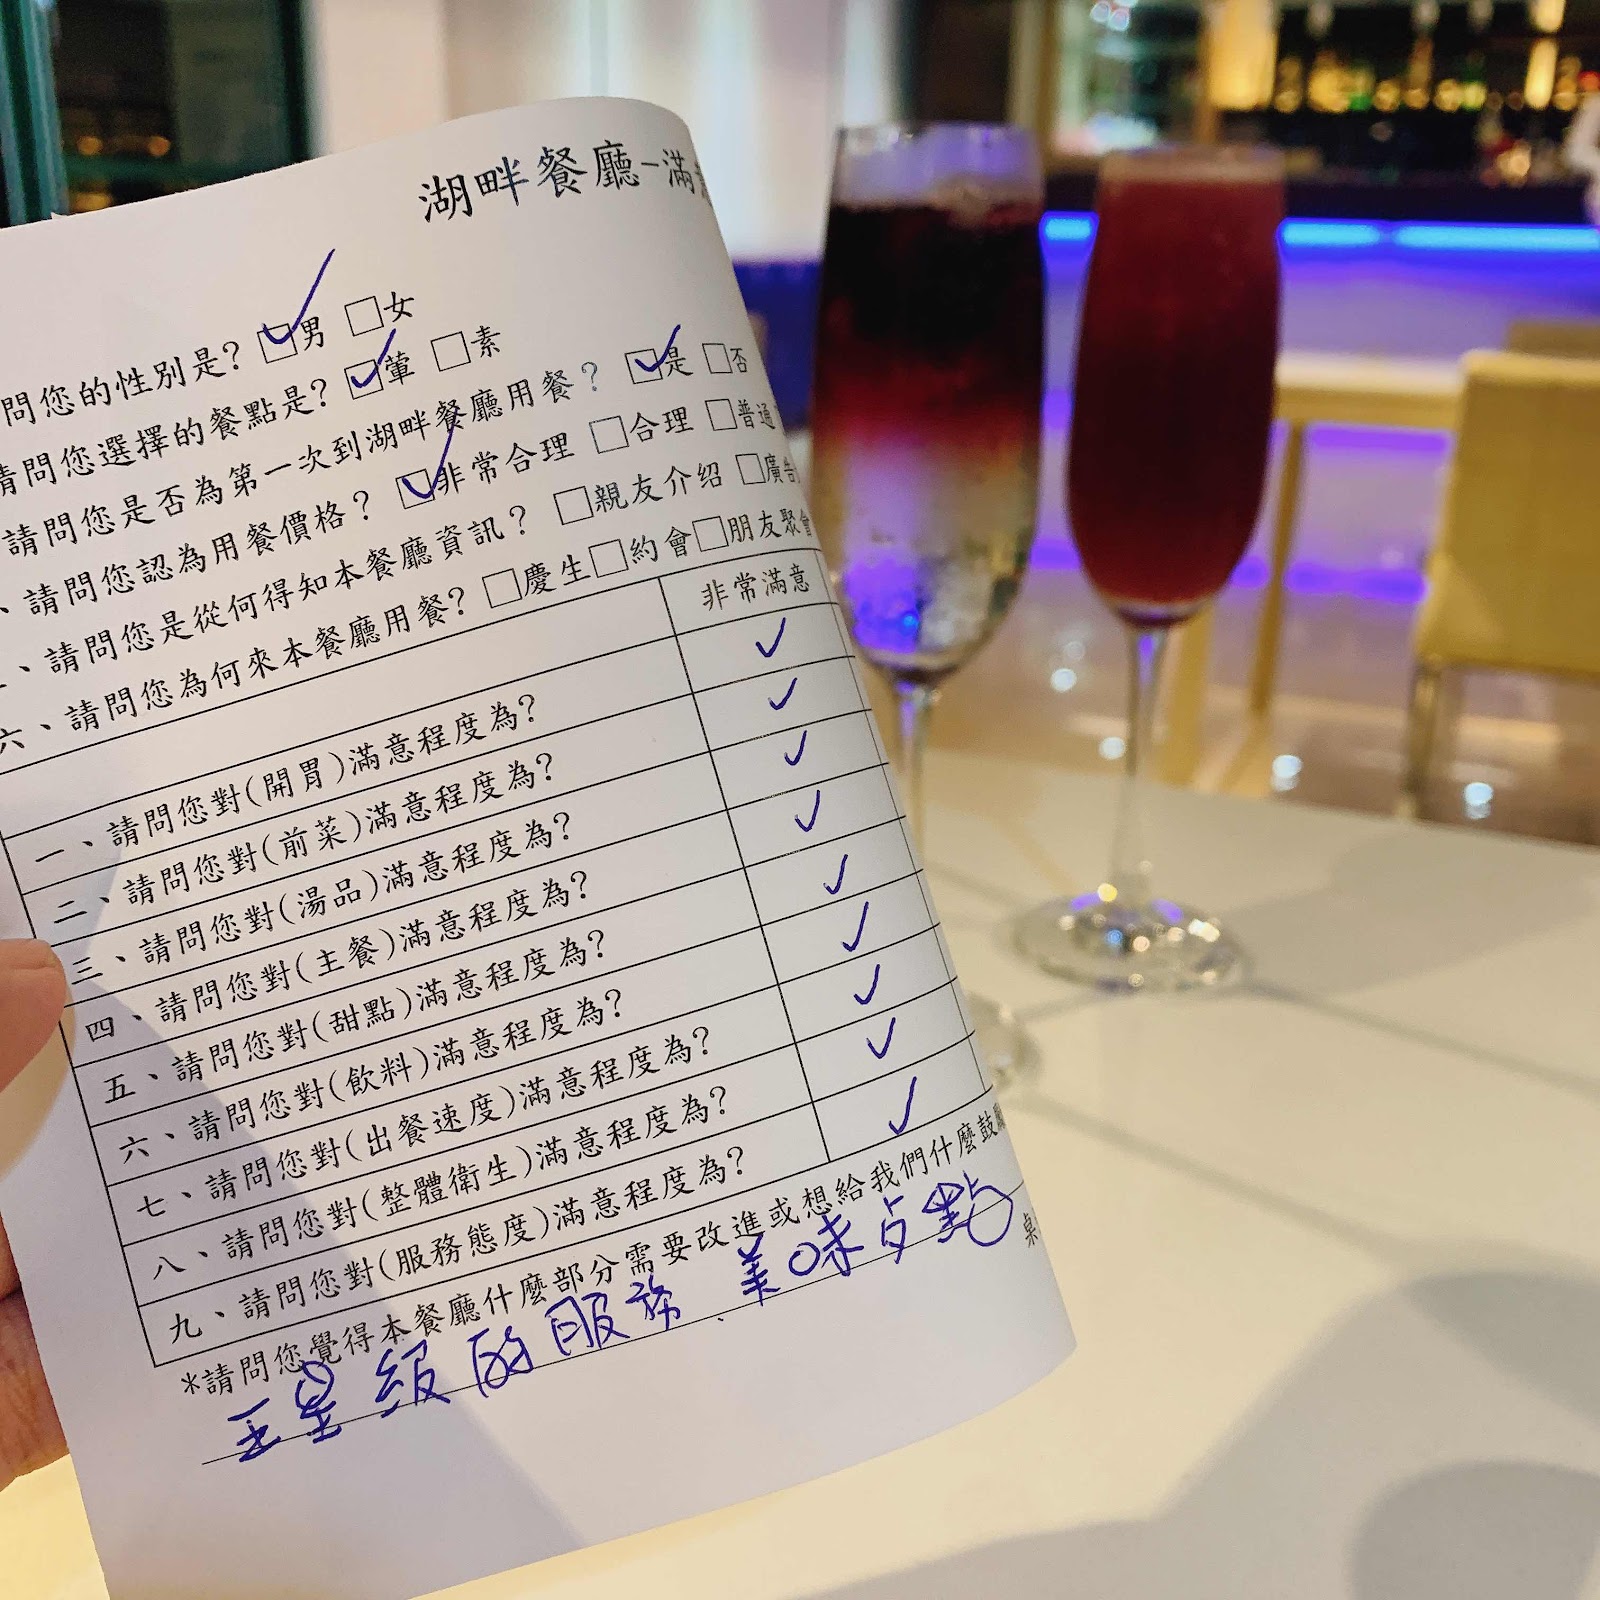 湖畔餐廳-滿意
問您的性別是? □男 □女
請問您選擇的餐點是? □葷 □素
請問您是否為第一次到湖畔餐廳用餐? □是 □否
、請問您認為用餐價格? □非常合理 □合理 □普通
、請問您是從何得知本餐廳資訊? □親友介绍 □廣告
六、請問您為何來本餐廳用餐? □慶生□約會□朋友聚會
非常滿意
一、請問您對(開胃)滿意程度為?
二、請問您對(前菜)滿意程度為?
三、請問您對(湯品)滿意程度為?
四、請問您對(主餐)滿意程度為?
五、請問您對(甜點)滿意程度為?
六、請問您對(飲料)滿意程度為?
七、請問您對(出餐速度)滿意程度為?
八、請問您對(整體衛生)滿意程度為?
九、請問您對(服務態度)滿意程度為?
*請問您覺得本餐廳什麼部分需要改進或想給我們什麼鼓勵
五星級的服務 美味点點
桌